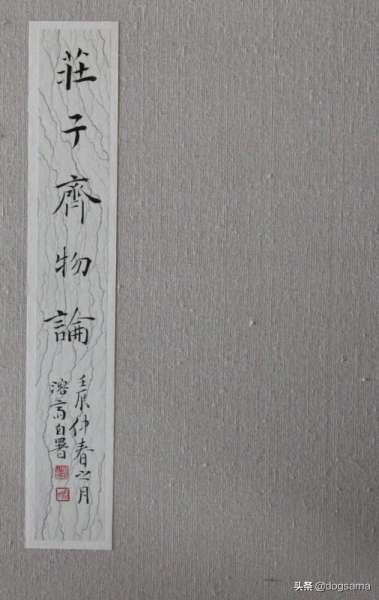 莊子齊物論
壬辰仲春之月
自署
头条 @dogsama